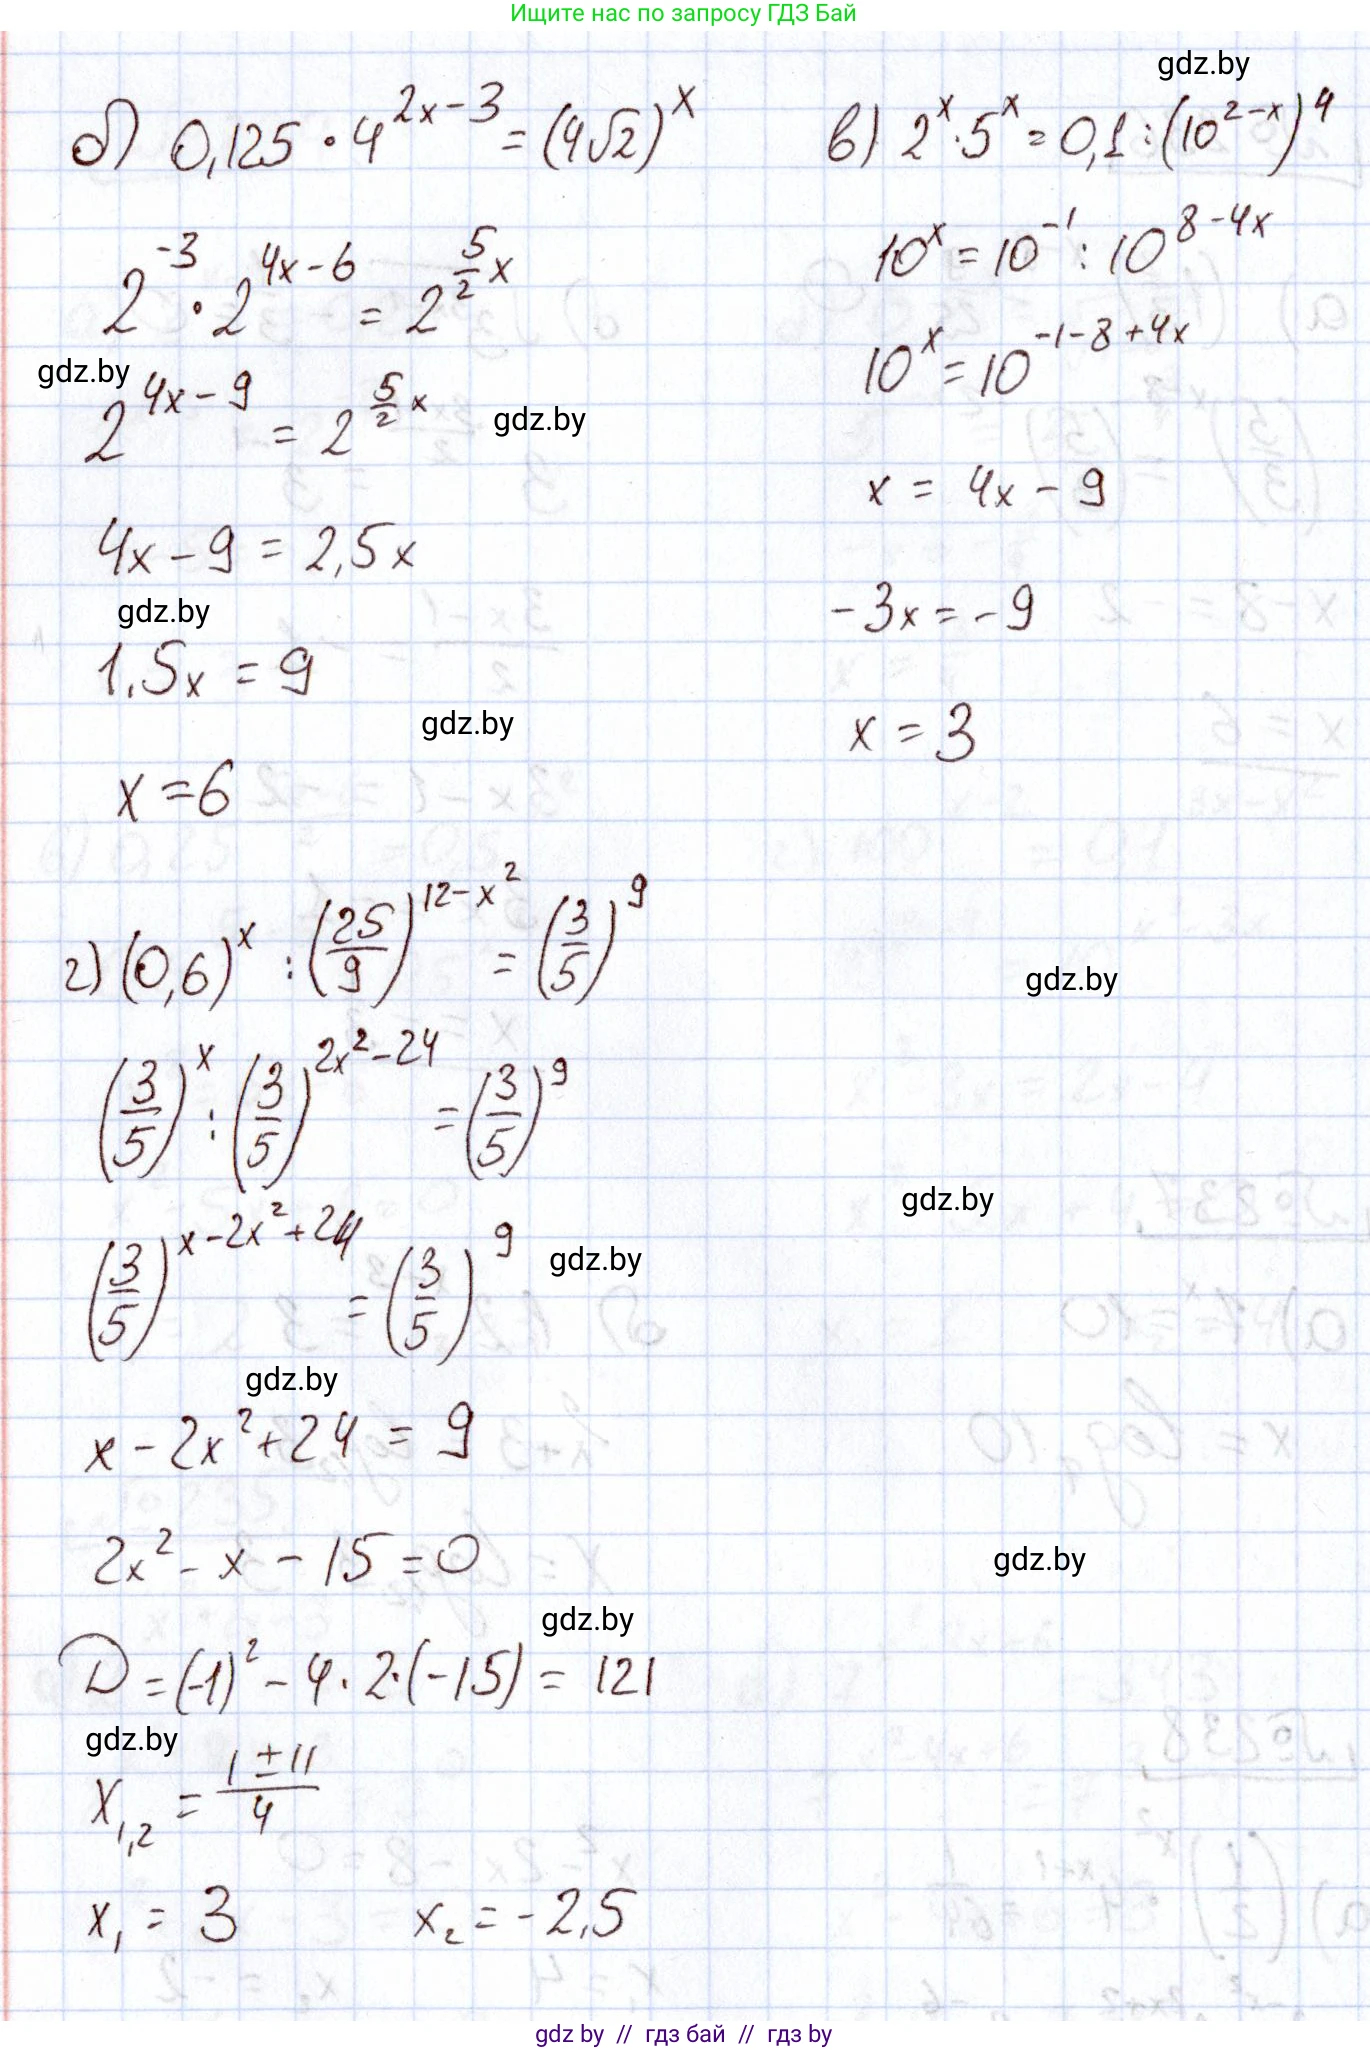 Ищите нас по запросу ГДЗ Бай
gdz.by
б) 0,125 · 4^(2x-3) = (4√2)^x
2^(-3) · 2^(4x-6) = 2^(5/2 x)
gdz.by
2^(4x-9) = 2^(5/2 x)
gdz.by
4x - 9 = 2,5x
gdz.by
1,5x = 9
gdz.by
x = 6
в) 2^x · 5^x = 0,1 : (10^(2-x))^4
10^x = 10^(-1) : 10^(8-4x)
10^x = 10^(-1-8+4x)
x = 4x - 9
-3x = -9
x = 3
г) (0,6)^x : (25/9)^(12-x²) = (3/5)^9
gdz.by
(3/5)^x : (3/5)^(2x²-24) = (3/5)^9
gdz.by
(3/5)^(x-2x²+24) = (3/5)^9
gdz.by
gdz.by
x - 2x² + 24 = 9
2x² - x - 15 = 0
gdz.by
gdz.by
D = (-1)² - 4 · 2 · (-15) = 121
gdz.by
x₁,₂ = (1 ± 11)/4
x₁ = 3 x₂ = -2,5
gdz by // гдз бай // гдз by